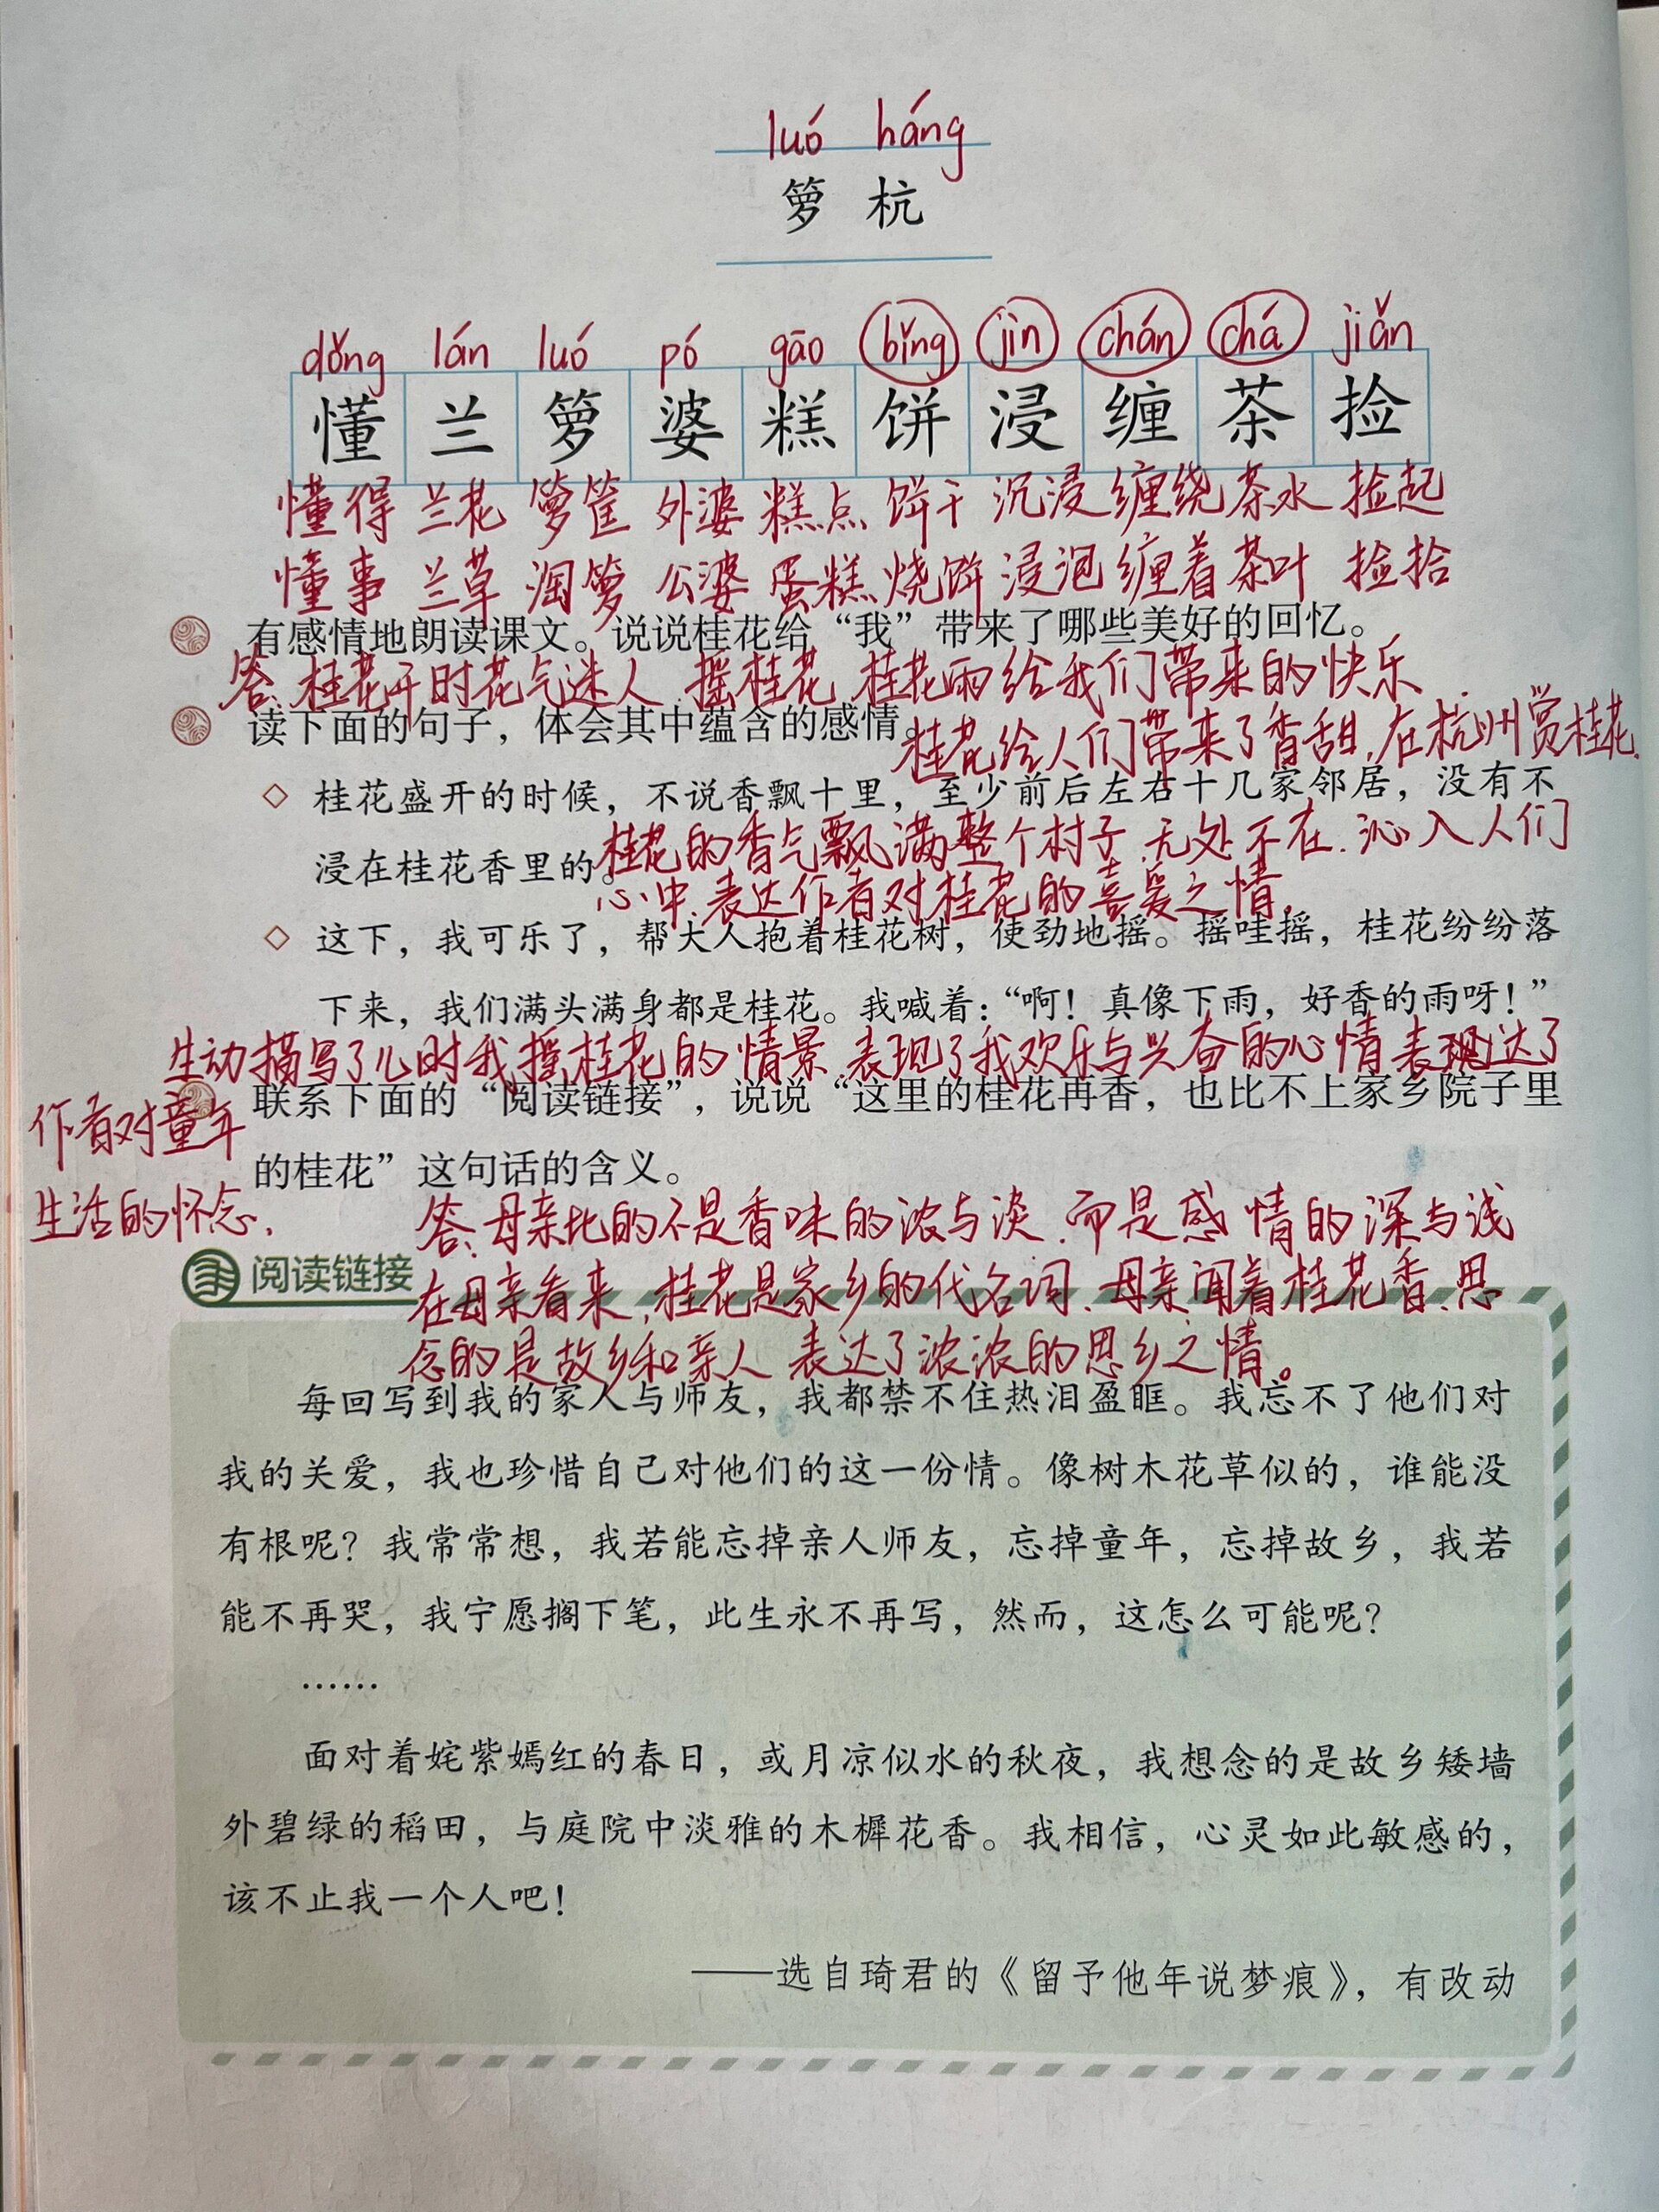 luó háng
箩 杭
dǒng lán luó pó gāo bǐng jìn chán chá jiǎn
懂 兰 箩 婆 糕 饼 浸 缠 茶 捡
懂得 兰花 箩筐 外婆 糕点 饼干 沉浸 缠绕 茶水 捡起
懂事 兰草 淘箩 公婆 蛋糕 烧饼 浸泡 缠着 茶叶 捡拾
有感情地朗读课文。说说桂花给“我”带来了哪些美好的回忆。
答、桂花开时花气迷人、摇桂花、桂花雨给我们带来的快乐、
读下面的句子，体会其中蕴含的感情。
桂花给人们带来了香甜、在杭州赏桂花、
桂花盛开的时候，不说香飘十里，至少前后左右十几家邻居，没有不
浸在桂花香里的。
桂花的香气飘满整个村子、无处不在、沁入人们
心中、表达作者对桂花的喜爱之情。
这下，我可乐了，帮大人抱着桂花树，使劲地摇。摇哇摇，桂花纷纷落
下来，我们满头满身都是桂花。我喊着：“啊！真像下雨，好香的雨呀！”
生动描写了儿时我摇桂花的情景、表现了我欢乐与兴奋的心情表达了
作者对童年
生活的怀念、
联系下面的“阅读链接”，说说“这里的桂花再香，也比不上家乡院子里
的桂花”这句话的含义。
答、母亲比的不是香味的浓与淡、而是感情的深与浅
在母亲看来、桂花是家乡的代名词、母亲闻着桂花香、思
念的是故乡和亲人 表达了浓浓的思乡之情。
阅读链接
每回写到我的家人与师友，我都禁不住热泪盈眶。我忘不了他们对
我的关爱，我也珍惜自己对他们的这一份情。像树木花草似的，谁能没
有根呢？我常常想，我若能忘掉亲人师友，忘掉童年，忘掉故乡，我若
能不再哭，我宁愿搁下笔，此生永不再写，然而，这怎么可能呢？
……
面对着姹紫嫣红的春日，或月凉似水的秋夜，我想念的是故乡矮墙
外碧绿的稻田，与庭院中淡雅的木樨花香。我相信，心灵如此敏感的，
该不止我一个人吧！
——选自琦君的《留予他年说梦痕》，有改动